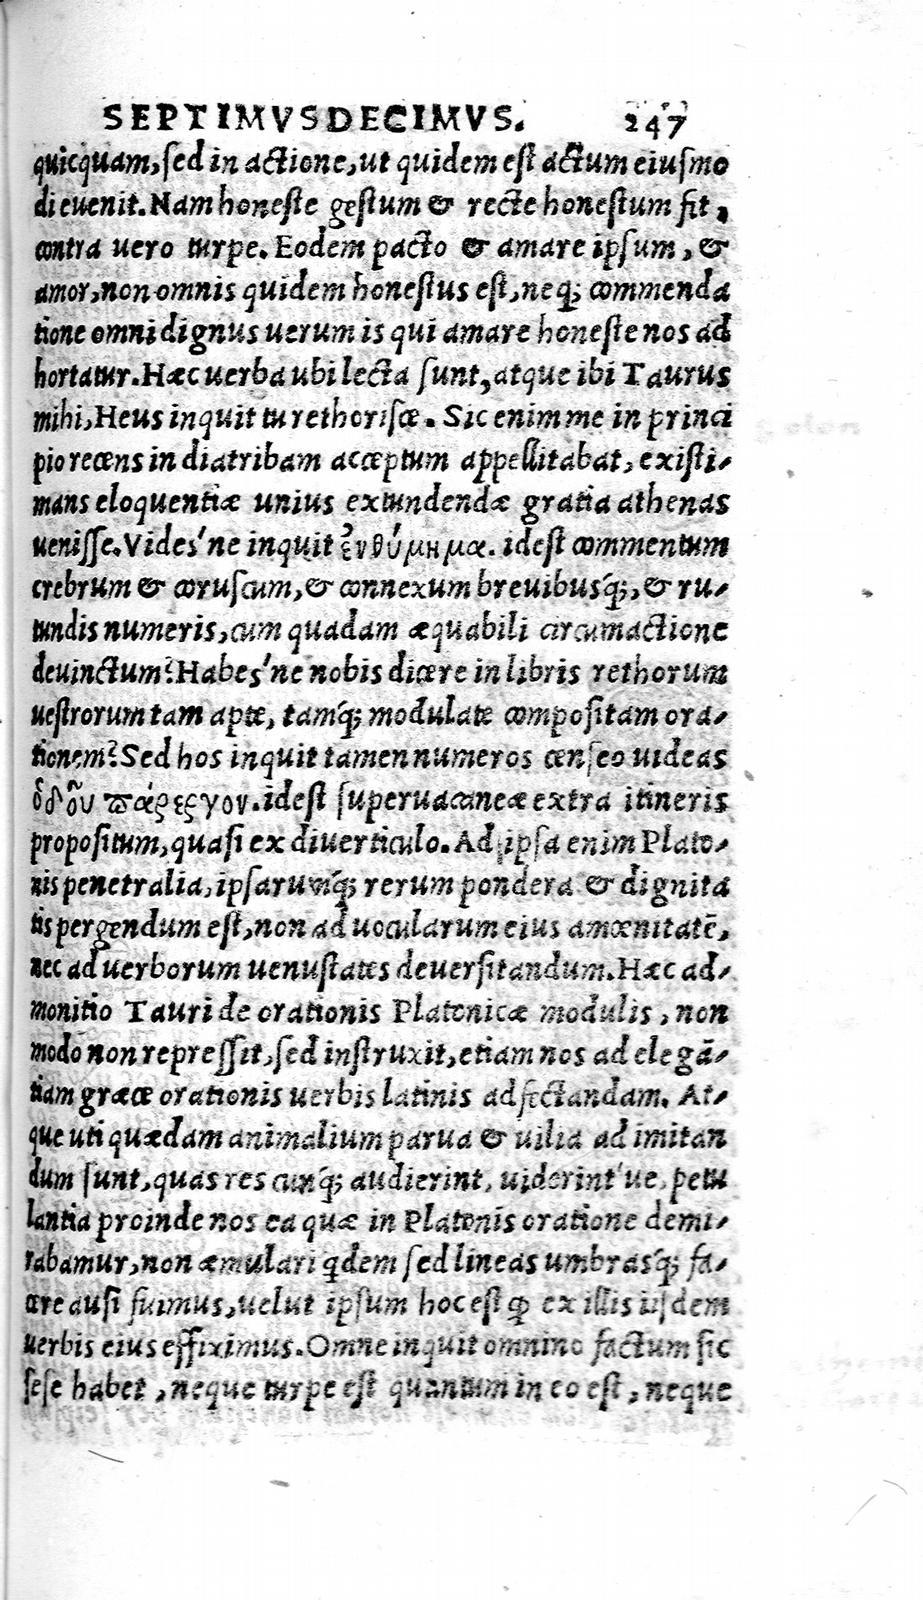 SEPTIMVSDECIMVS. 247
quicquam, sed in actione, ut quidem est actum eiusmo
di euenit. Nam honeste gestum & recte honestum fit,
contra uero turpe. Eodem pacto & amare ipsum, &
amor, non omnis quidem honestus est, neq; commenda
tione omni dignus uerum is qui amare honeste nos ad
hortatur. Hæc uerba ubi lecta sunt, atque ibi Taurus
mihi, Heus inquit tu rethorisce. Sic enim me in princi
pio recens in diatribam acceptum appellitabat, existi-
mans eloquentiæ unius extundendæ gratia athenas
uenisse. Vides'ne inquit ἐνθύμημα. idest commentum
crebrum & coruscum, & connexum breuibusq́;, & ru-
tundis numeris, cum quadam æquabili circumactione
deuinctum? Habes'ne nobis dicere in libris rethorum
uestrorum tam apte, tamq́; modulate compositam ora-
tionem? Sed hos inquit tamen numeros censeo uideas
ὁδοῦ πάρεργον. idest superuacaneæ extra itineris
propositum, quasi ex diuerticulo. Ad ipsa enim Plato-
nis penetralia, ipsarumq́; rerum pondera & dignita
tis pergendum est, non ad uocularum eius amœnitatē,
nec ad uerborum uenustates deuersitandum. Hæc ad-
monitio Tauri de orationis Platonicæ modulis, non
modo non repressit, sed instruxit, etiam nos ad elegā-
tiam græcæ orationis uerbis latinis adfectandam. At-
que uti quædam animalium parua & uilia ad imitan
dum sunt, quas res cunq́; audierint, uiderint'ue, petu
lantia proinde nos ea quæ in Platonis oratione demi-
rabamur, non æmulari qdem sed lineas umbrasq́; fa-
cere ausi fuimus, uelut ipsum hoc est ꝙ ex illis iisdem
uerbis eius effiximus. Omne inquit omnino factum sic
sese habet, neque turpe est quantum in eo est, neque